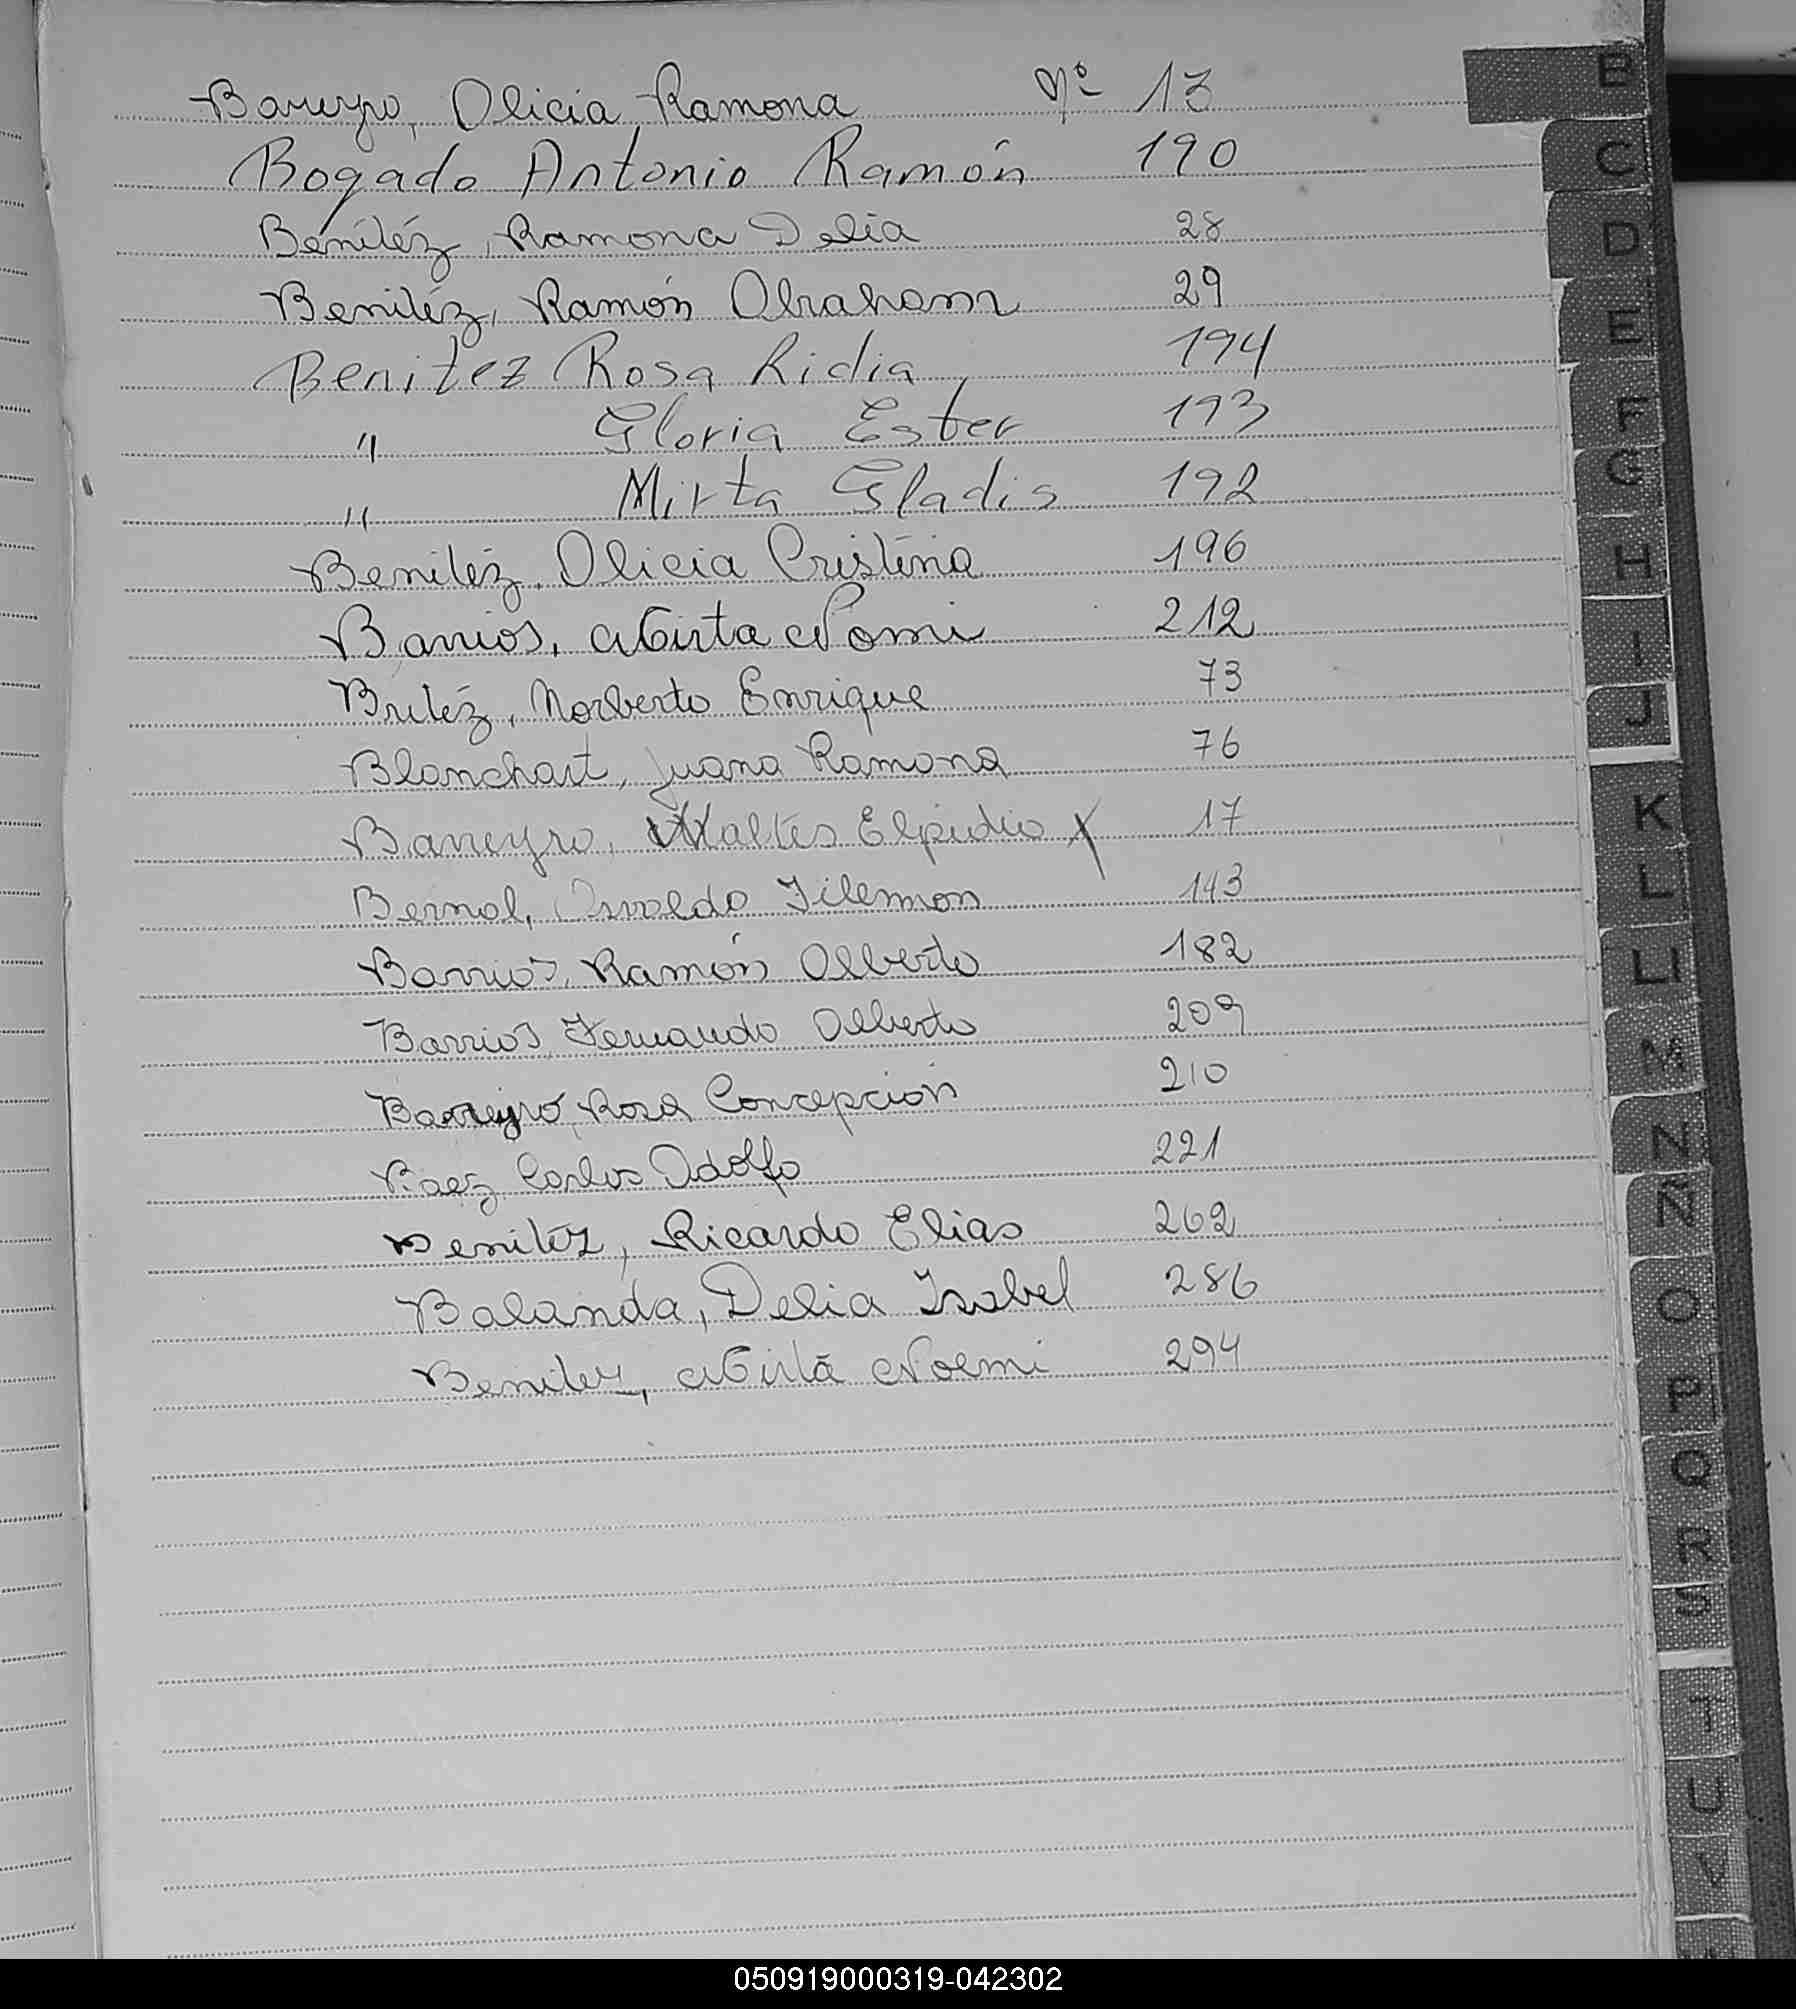 Barreyro, Alicia Ramona Nº 13
Bogado Antonio Ramón 190
Benítéz, Ramona Delia 28
Benitéz, Ramón Abraham 29
Benitez Rosa Lidia, 194
" Gloria Ester 193
" Mirta Gladis 192
Benitéz, Alicia Cristina 196
Barrios, Mirta Nomi 212
Britéz, Norberto Enrique 73
Blanchart, Juana Ramona 76
Barreyro, Elpidio X 17
Bernal, Osvaldo Filemon 143
Barrios, Ramón Alberto 182
Barrios Fernando Alberto 209
Barreyro, Rosa Concepción 210
Baez Carlos Adolfo 221
Benitéz, Ricardo Elias 262
Balanda, Delia Isabel 286
Benitez, Mirta Noemi 294
B
C
D
E
F
G
H
I
J
K
L
Ll
M
N
Ñ
O
P
Q
R
S
T
U
V
050919000319-042302